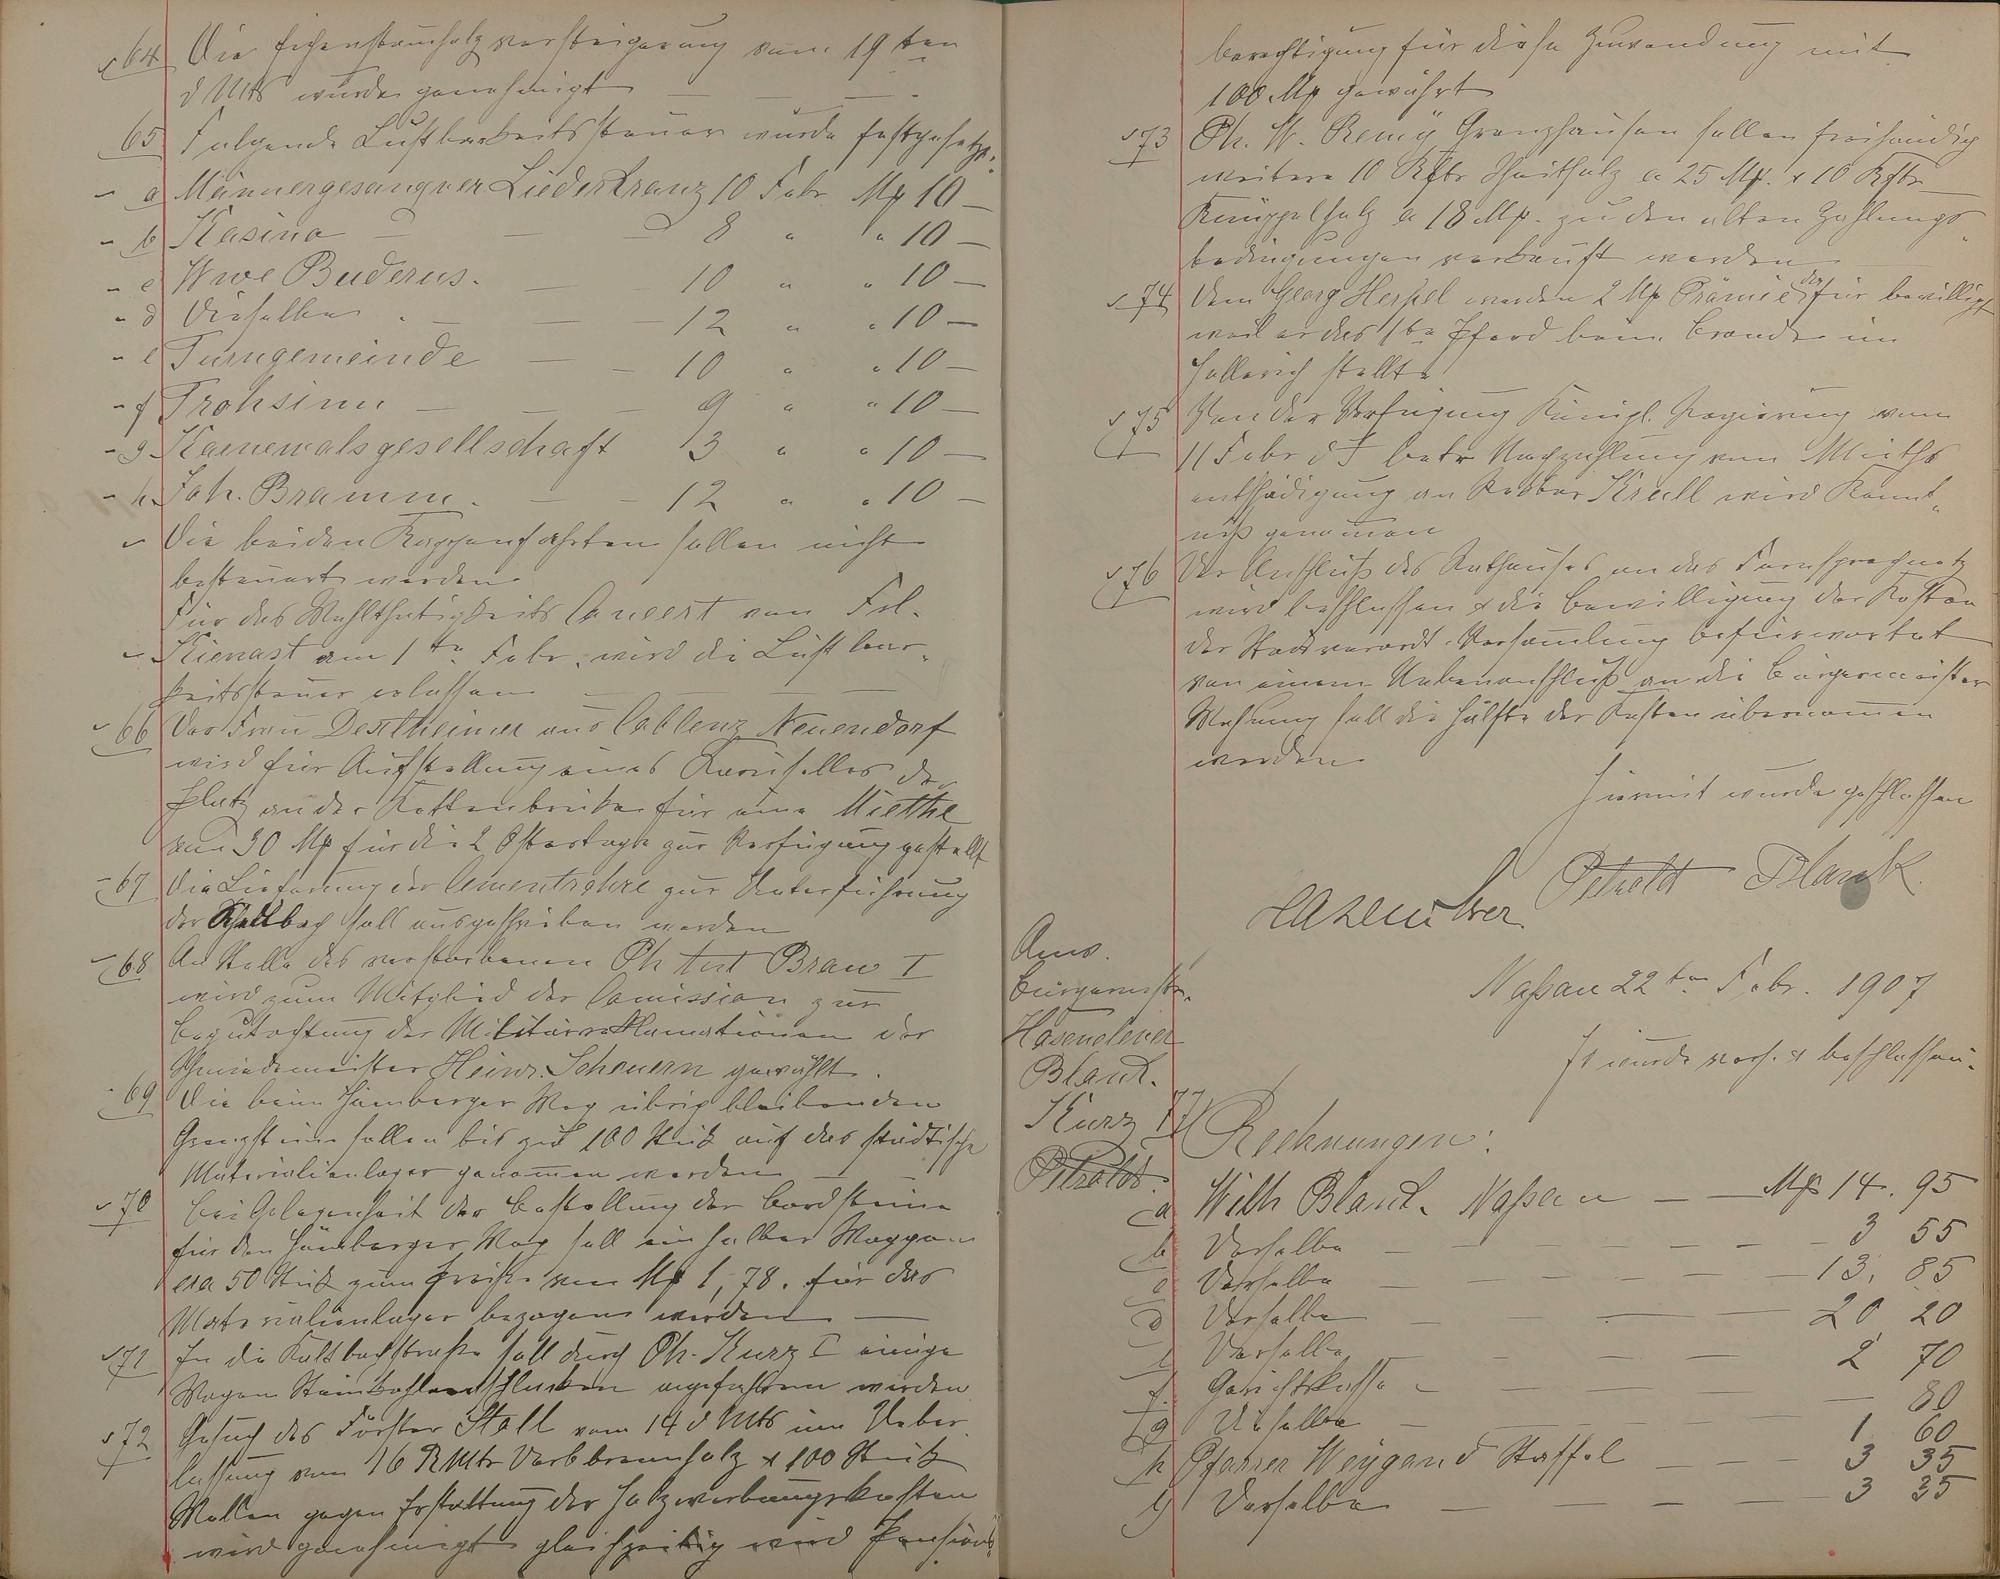 64 Die Eichenstammholzversteigerung vom 19ten
d Mts wurde genehmigt
65 Folgende Lustbarkeitssteuer wurde festgesetzt:
a Männergesangver Liederkranz 10 Febr. Mk 10 —
b Kasino — — 8 " " 10 —
c Wwe Buderus. — 10 " " 10 —
d Dieselbe . — — 12 " " 10 —
e Turngemeinde — — 10 " " 10 —
f Frohsinn — — — 9 " " 10 —
g Karnewalsgesellschaft 3 " " 10 —
h Joh. Bramm. — — 12 " " 10 —
Die beiden Kappenfahrten sollen nicht
besteuert werden
Für das Wohlthätigkeits Concert von Frl.
Kienast am 1ten Febr. wird die Lustbar-
keitssteuer erlassen
66 Der Frau aus Coblenz Neuendorf
wird für Aufstellung eines Karusselles der
Platz an der Kettenbrücke für eine Miethe
von 30 Mk für die 2 Ostertage zur Verfügung gestellt
67 Die Lieferung der Cementrohre zur Unterführung
der bach soll ausgeschrieben werden
68 An Stelle des verstorbenen Ph Brau I
wird zum Mitglied der Comission zur
Begutachtung der Militärreklamationen der
Schmiedemeister Heinr. Scheuern gewählt.
69 Die beim Hömberger Weg übrig bleibenden
Grenzsteine sollen bis zu 100 Stück auf das städtische
Materialienlager genommen werden
70 Bei Gelegenheit der Bestellung der Bordsteine
für den Hömberger Weg soll ein halber Waggon
cca 50 Stück zum Preise von Mk 1,78. für das
Materialienlager bezogen werden
71 In die Kaltbachstraße soll durch Ph. Kurz I einige
Wagen Steinkohlenschlacken angefahren werden
72 Gesuch des Förster Stoll vom 14 d Mts um Ueber
lassung von 16 RMtr Derbbrennholz & 100 Stück
Wellen gegen Erstattung der Holzwerbungskosten
wird genehmigt gleichzeitig wird Pensions-
berechtigung für diese Zuwendung mit
100 Mk gewährt
73 Ph. W. Remy Grenzhausen sollen freihändig
weitere 10 Kftr Scheitholz a 25 Mk. & 10 Kftr
Knüppelholz a 18 Mk. zu den alten Zahlungs-
bedingungen verkauft werden
74 Dem Georg Herpel werden 2 Mk Prämie dafür bewilligt
weil er das 1te Pferd beim Brande im
stellte
75 Von der Verfügung Königl. Regierung vom
11 Febr d J betr Nachzahlung von Mieths
entschädigung an Rektor Krull wird Kennt-
niß genommen
76 Der Anschluß des Rathauses an das Fernsprechnetz
wird beschlossen & die Bewilligung der Kosten
der Stadtverordt. Versamlung befürwortet
von einem Nebenanschluß an die Bürgermeister
Wohnung soll die Hälfte der Kosten übernommen
werden
Hiermit wurde geschlossen
Hasenclever. Petroldt Blank.
Nassau 22ten Febr. 1907
Anw.
Bürgermstr.
Hasenclever
Blank.
Kurz
Petroldt.
Es wurde verh. & beschlossen.
77 Rechnungen:
a Wilh Blank. Nassau — — Mk 14. 95
b Derselbe — 3 55
c Derselbe — 13. 85
d Derselbe — 20 20
e Derselbe — 2 70
f Gerichtskasse — 80
g Dieselbe — 1 60
h Pfarrer Weygand Staffel — 3 35
i Derselbe — 3 35